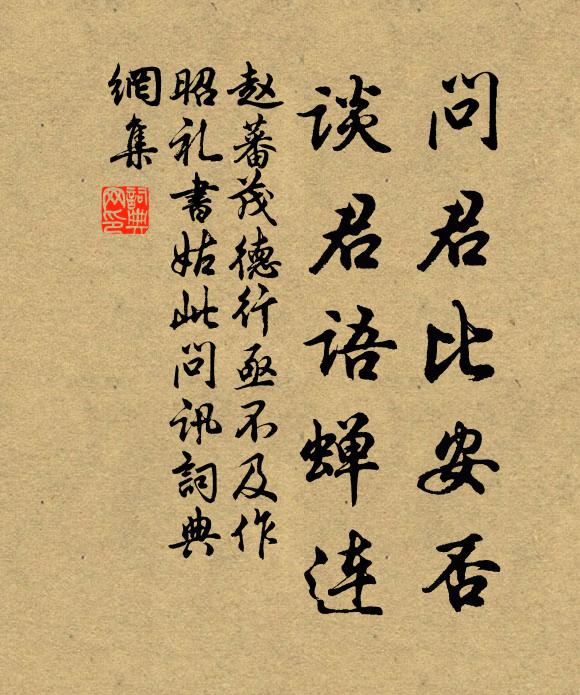 问君比安否
谈君语蝉连
赵蕃茂德行亟不及作
昭礼书姑此问讯詞典
網集
詞典
网印